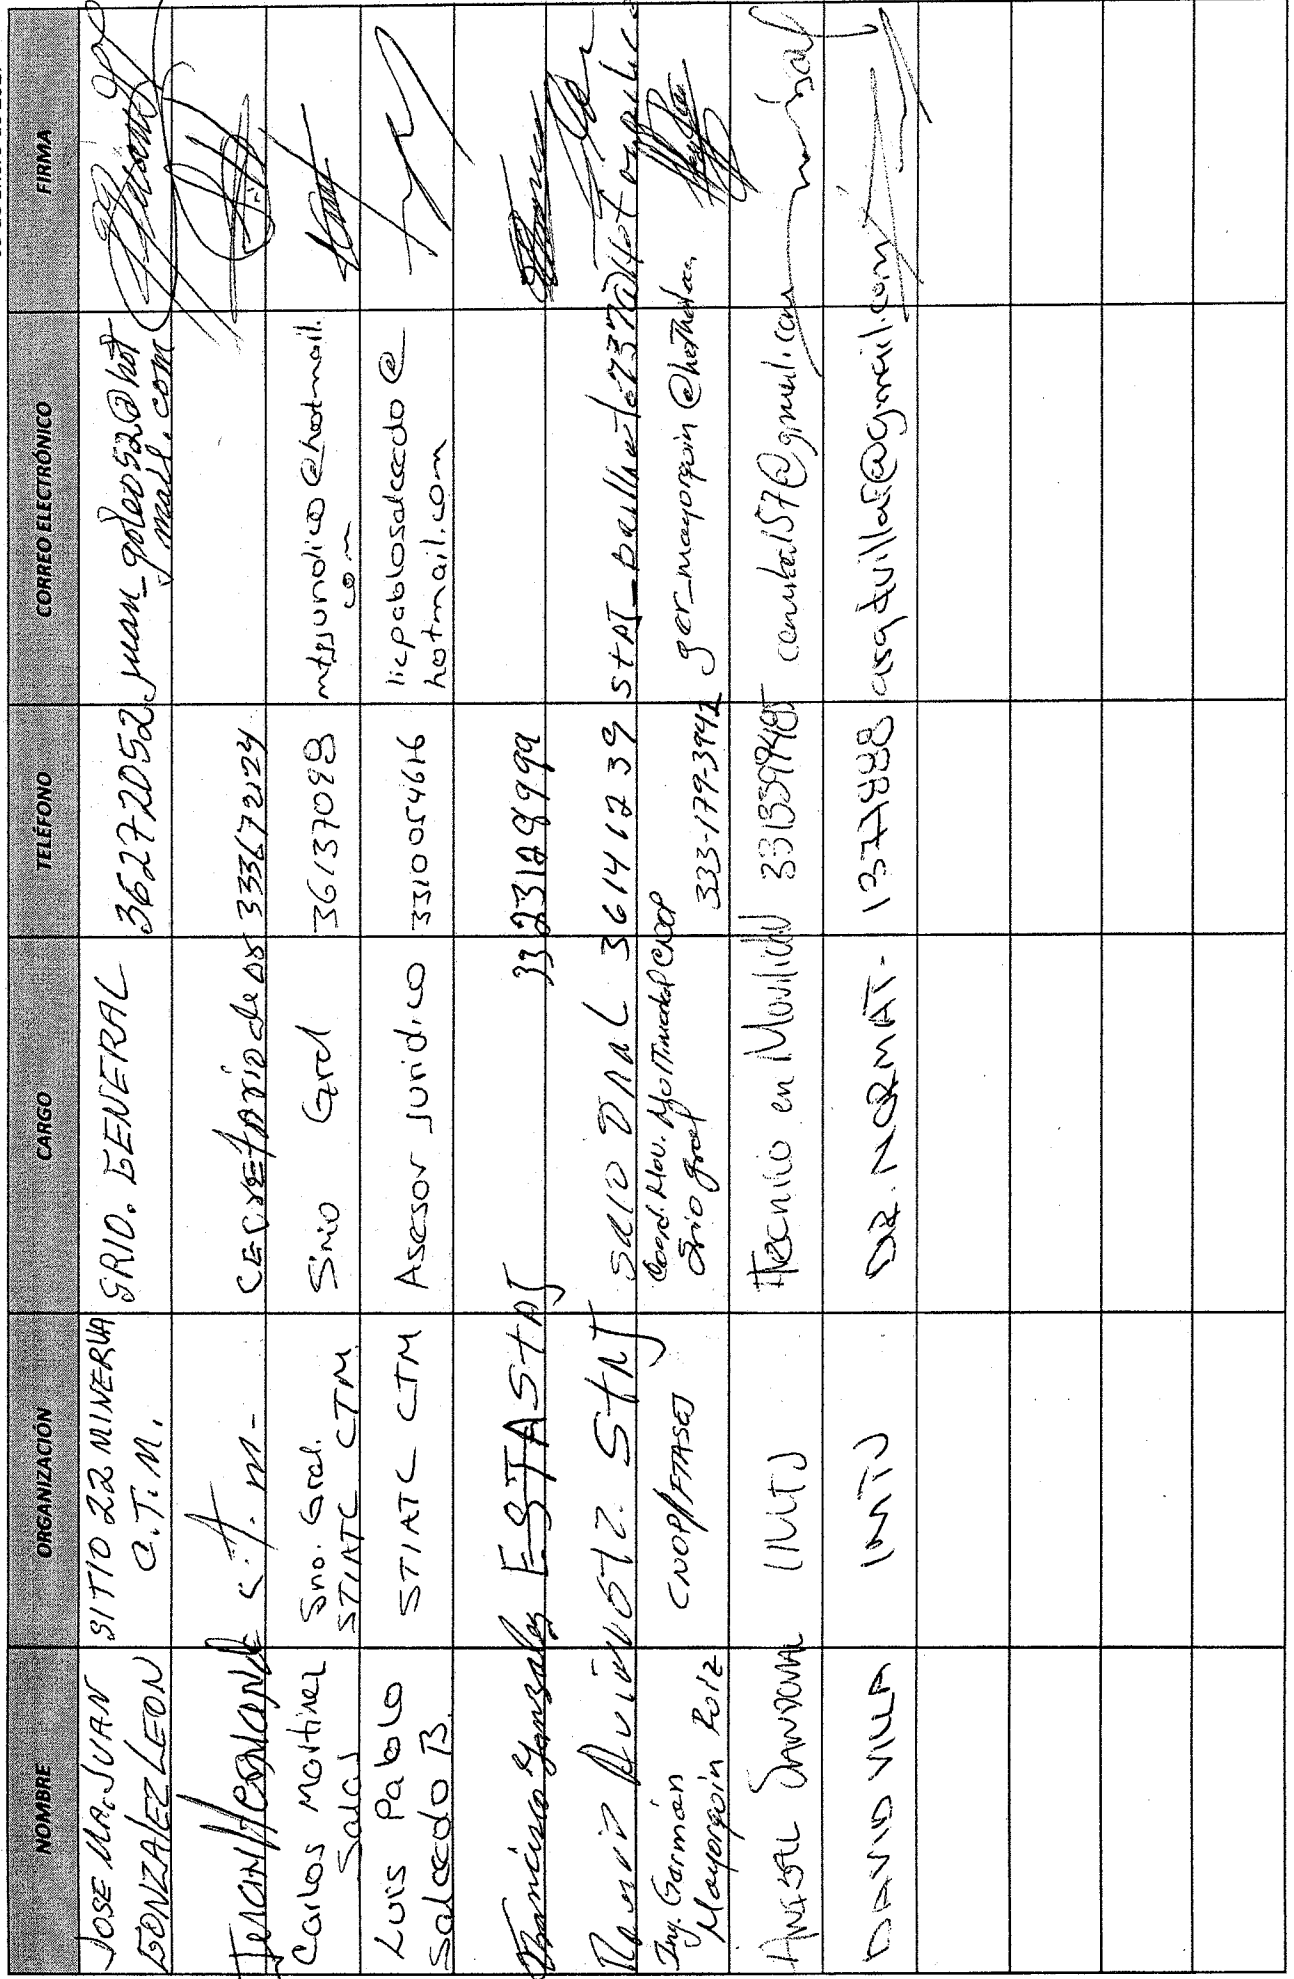 NOMBRE ORGANIZACIÓN CARGO TELÉFONO CORREO ELECTRÓNICO FIRMA
JOSE MA. JUAN GONZALEZ LEON
SITIO 22 MINERVA C.T.M.
SRIO. GENERAL
36272052
juan_goleo52@hot mail.com
Juan
c.t.m-
333672124
Carlos Martinez Salas
Srio. Gral. STIATC CTM
Srio Gral
36137098
mtsjuridico@hotmail. com
Luis Pablo Salcedo B.
STIATC CTM
Asesor Juridico
3310054616
licpablosalcedo@ hotmail.com
Francisco Gonzalez
ESTASTAJ
3323128999
STAJ
SRIO
36141239
Ing. Germán Mayorquin Ruiz
CNOP/FTASEJ
Coord. Mov. Multimodal CNOP Srio gral
333-179-3942
ger_mayorquin@
Angel Sandoval
IMTJ
Tecnico en Movilidad
@gmail.com
DAVID VILLA
IMTJ
DR. NORMAT.
arqdvillaf@gmail.com